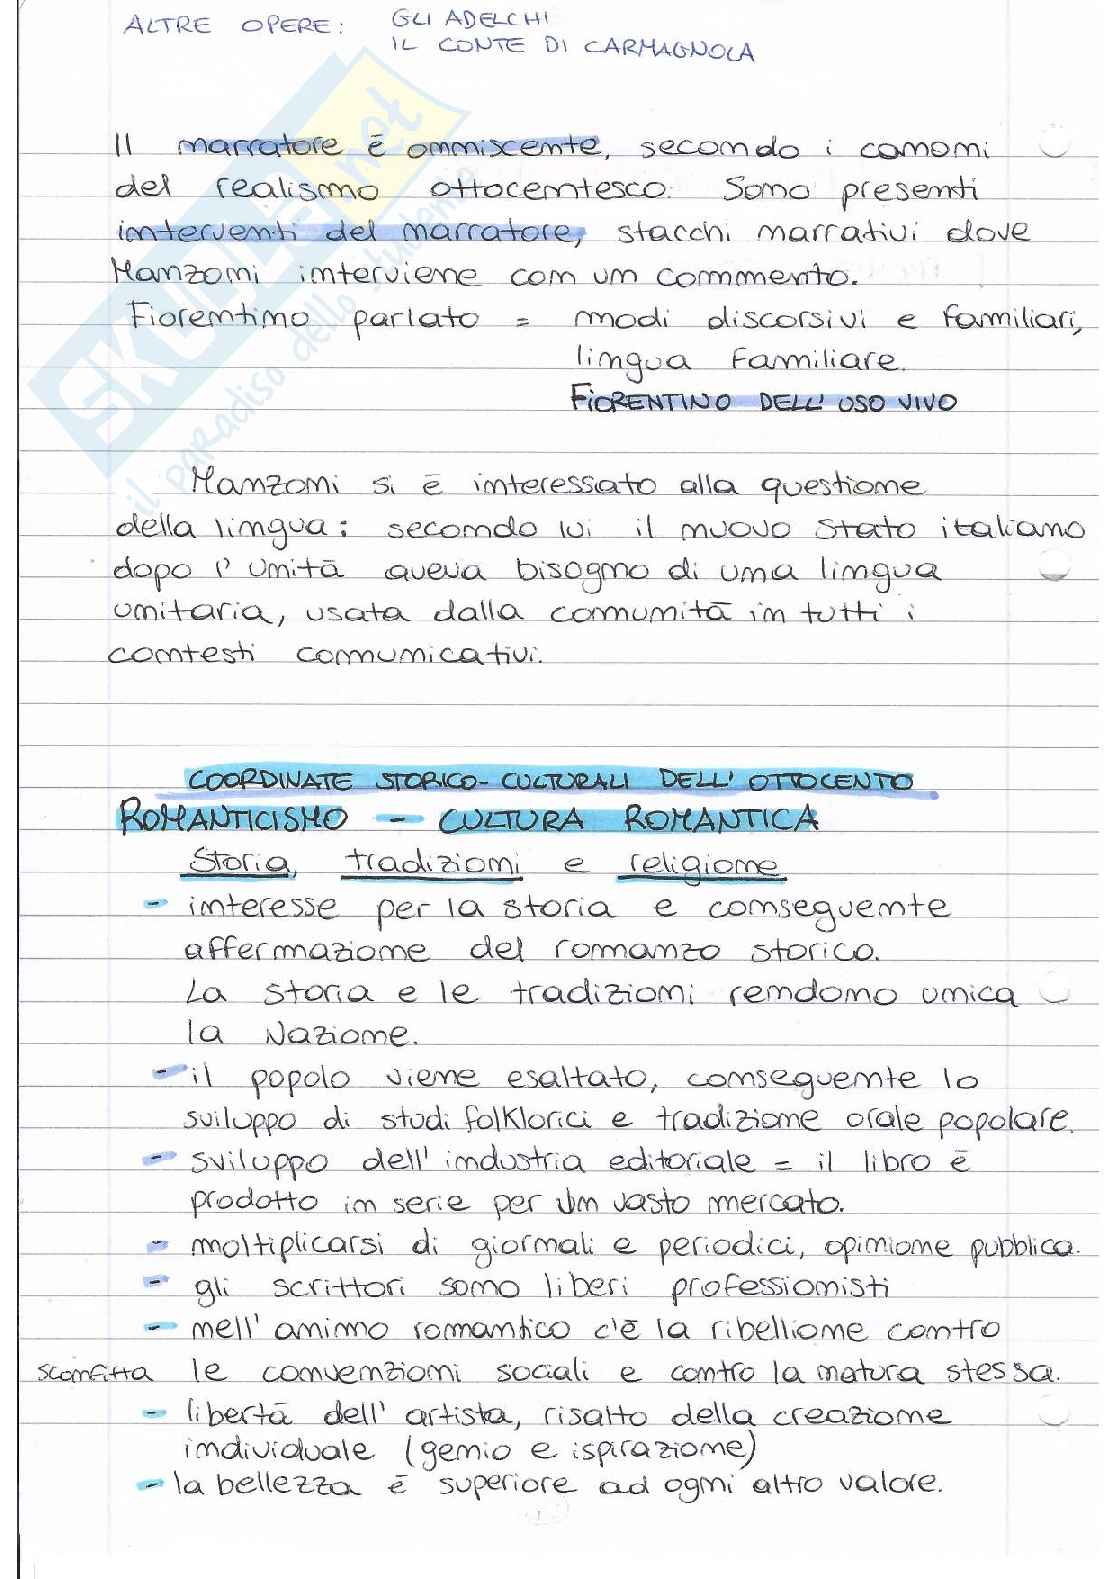 ALTRE OPERE: GLI ADELCHI
IL CONTE DI CARMAGNOLA
Il narratore è onniscente, secondo i canoni
del realismo ottocentesco. Sono presenti
interventi del narratore, stacchi narrativi dove
Manzoni interviene con un commento.
Fiorentino parlato = modi discorsivi e familiari,
lingua familiare.
FIORENTINO DELL'USO VIVO
Manzoni si è interessato alla questione
della lingua: secondo lui il nuovo Stato italiano
dopo l'Unità aveva bisogno di una lingua
unitaria, usata dalla comunità in tutti i
contesti comunicativi.
COORDINATE STORICO-CULTURALI DELL'OTTOCENTO
ROMANTICISMO - CULTURA ROMANTICA
Storia, tradizioni e religione
- interesse per la storia e conseguente
affermazione del romanzo storico.
La storia e le tradizioni rendono unica
la Nazione.
- il popolo viene esaltato, conseguente lo
sviluppo di studi folklorici e tradizione orale popolare.
- sviluppo dell'industria editoriale = il libro è
prodotto in serie per un vasto mercato.
- moltiplicarsi di giornali e periodici, opinione pubblica.
- gli scrittori sono liberi professionisti
- nell'animo romantico c'è la ribellione contro
sconfitta le convenzioni sociali e contro la natura stessa.
- libertà dell'artista, risalto della creazione
individuale (genio e ispirazione)
- la bellezza è superiore ad ogni altro valore.
SKUOLA.net
il paradiso dello studente